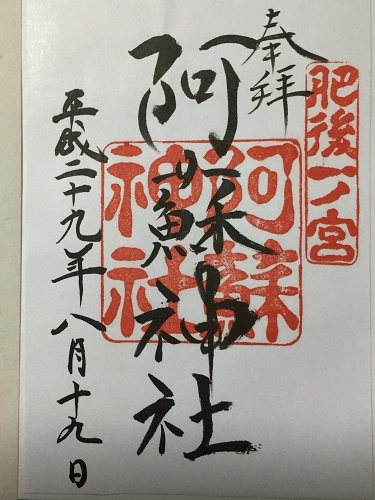 奉拝
肥後一ノ宮
阿蘇神社
阿蘇神社
平成二十九年八月十九日